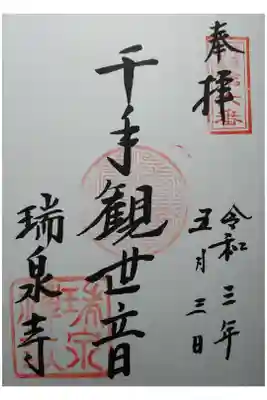 奉拝
令和三年
五月三日
千手観世音
瑞泉寺